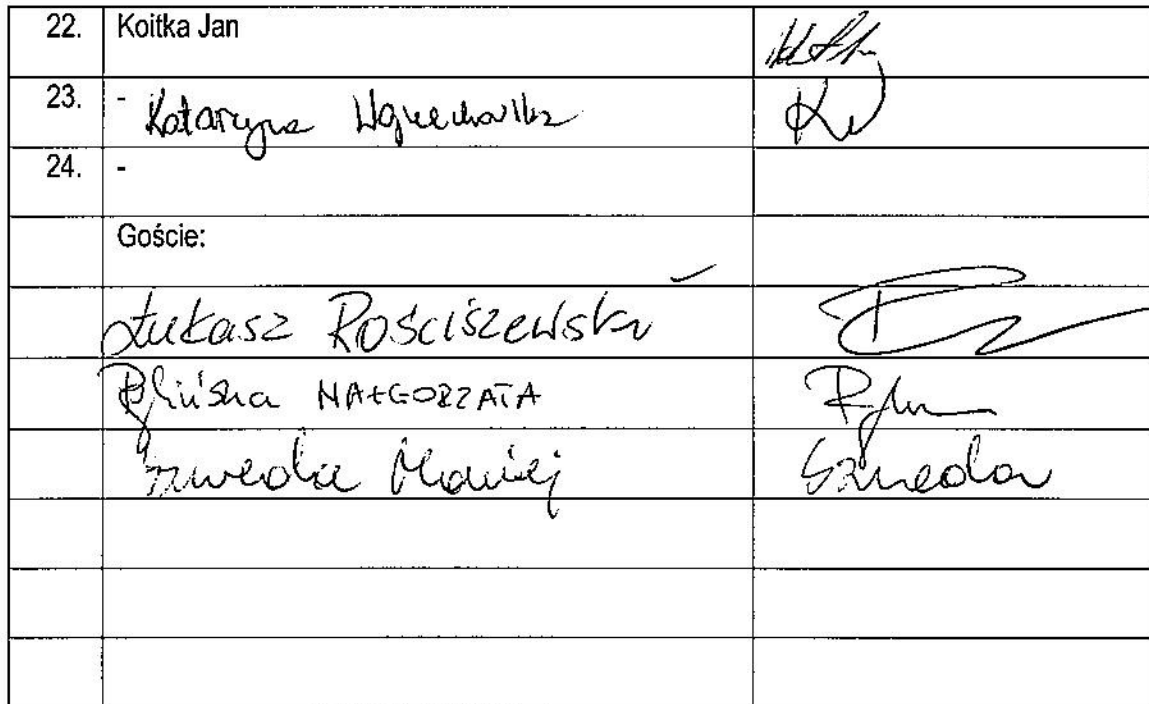 22. Koitka Jan
23. - Katarzyna
24. -
Goście:
Łukasz Rościszewski
MAŁGORZATA
Szweda Maciej Szweda